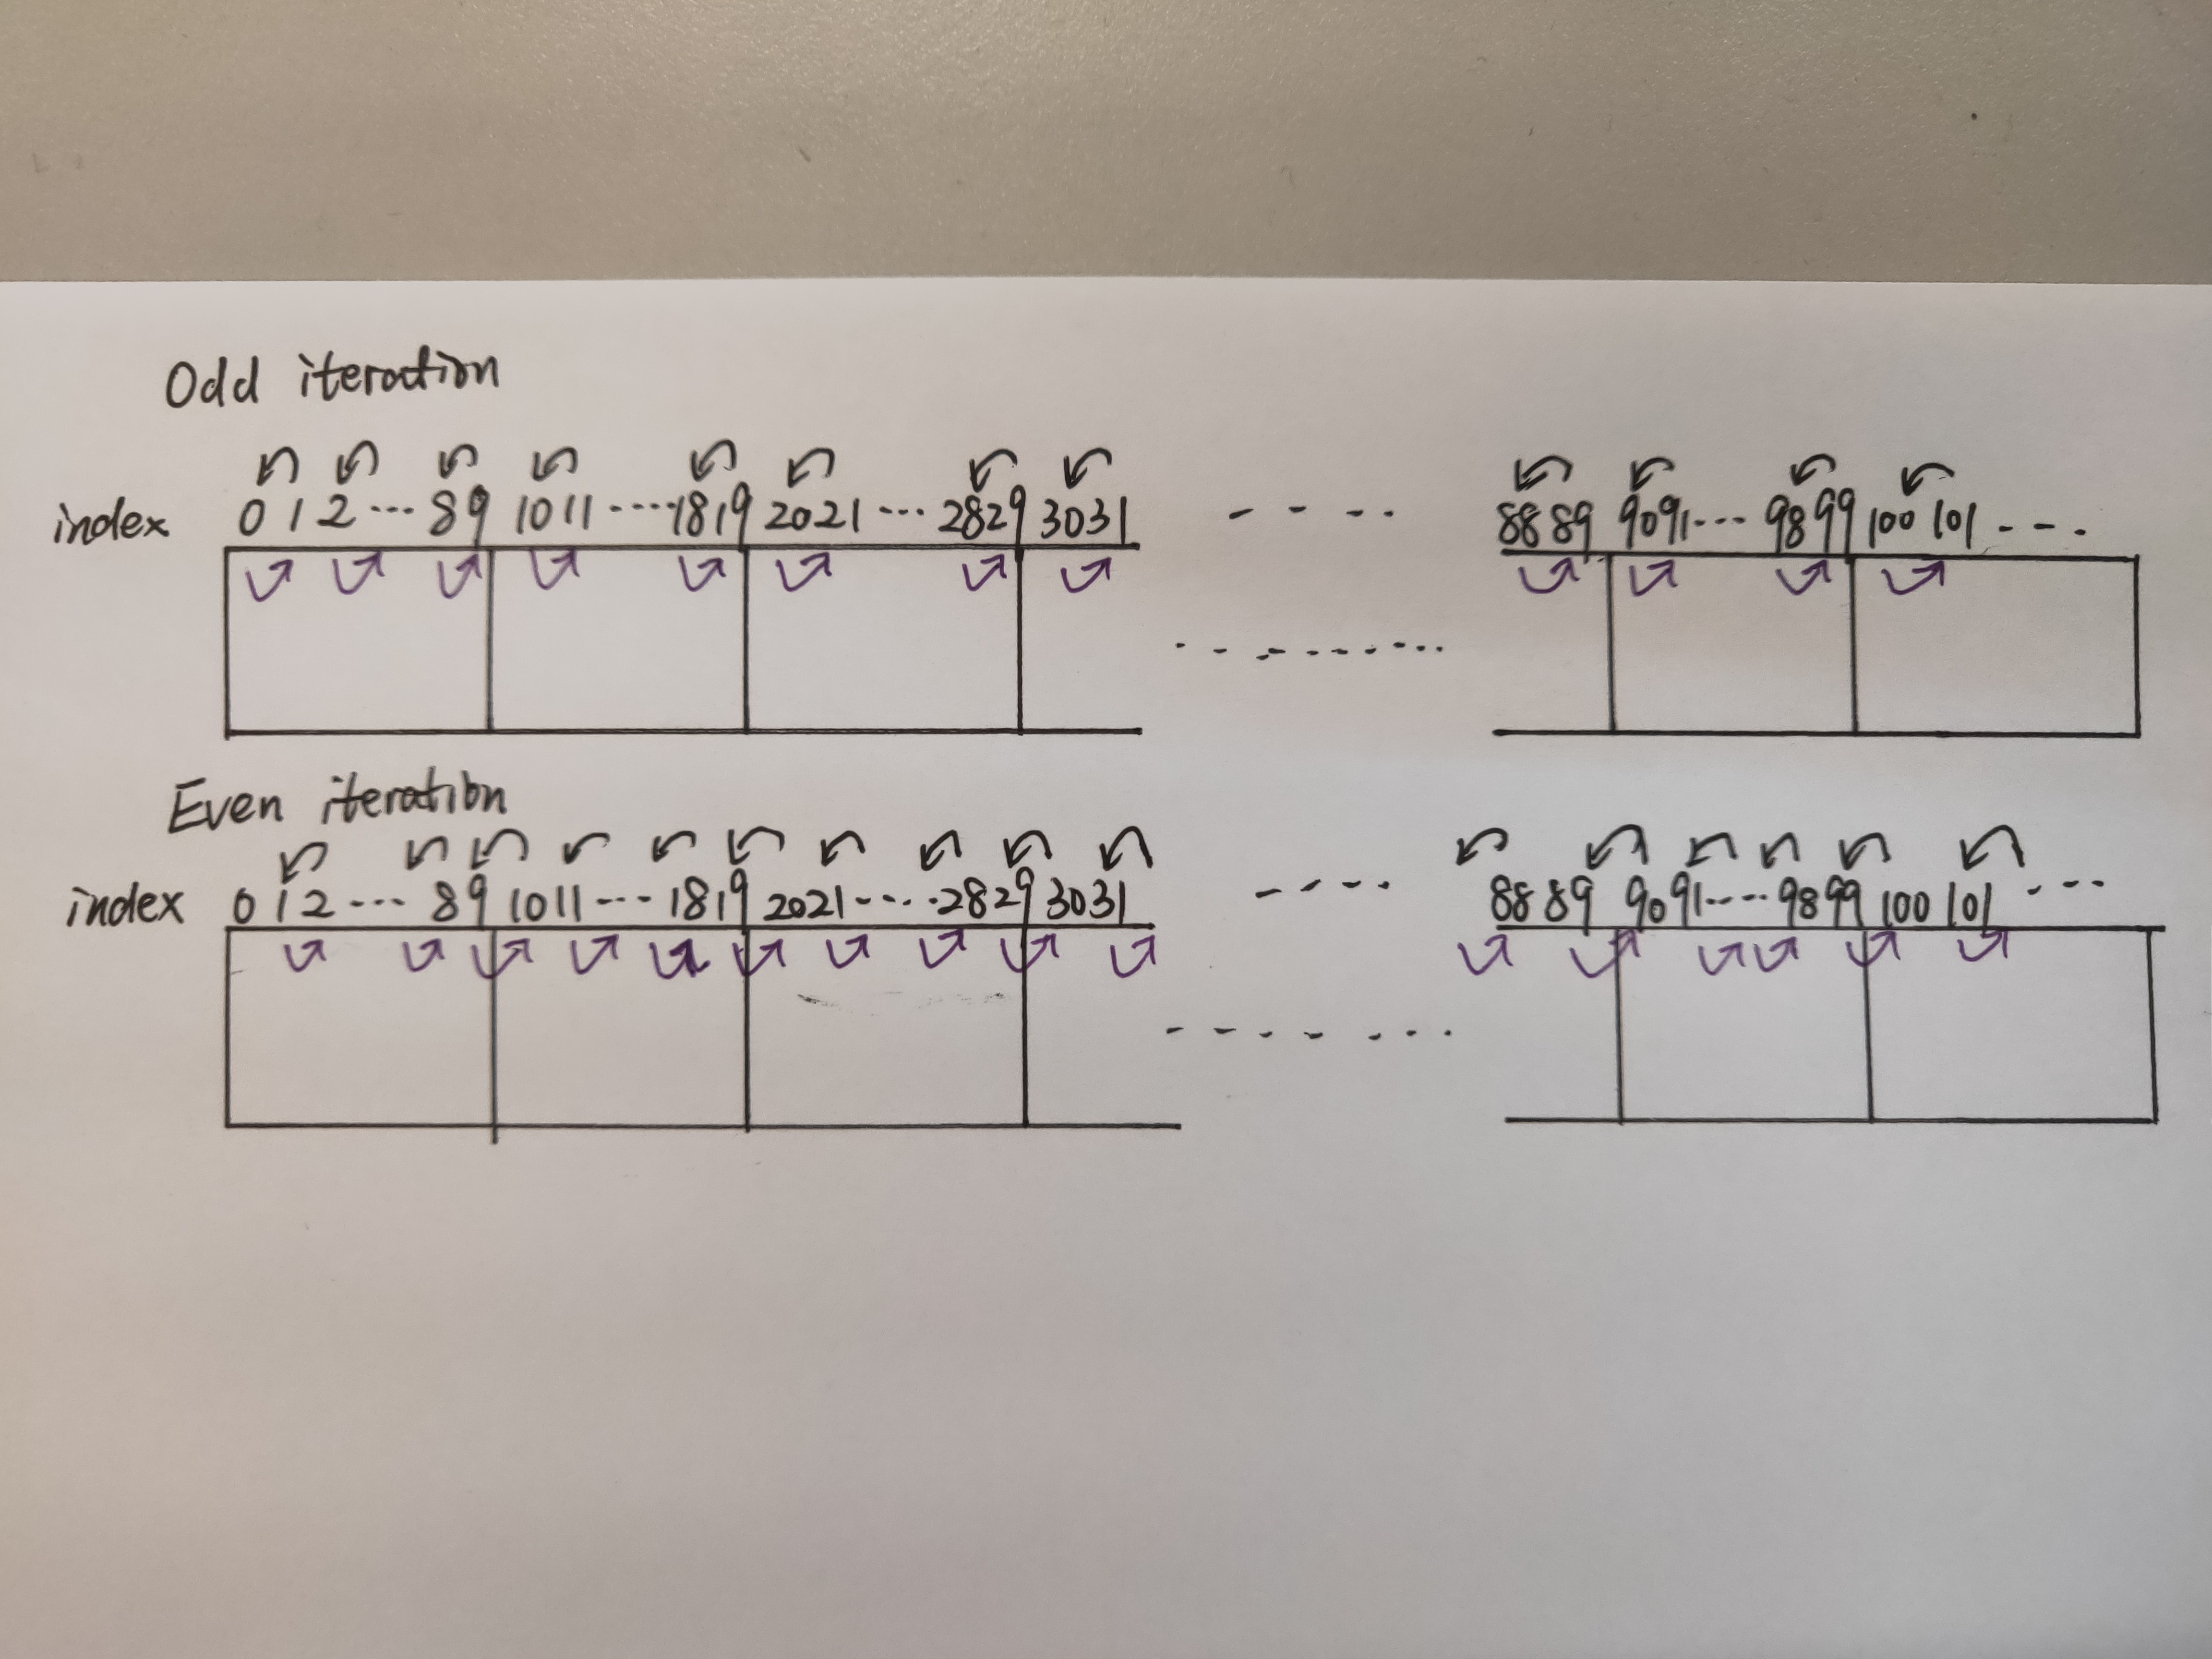 Odd iteration
index 0 1 2 ... 8 9 10 11 ..... 18 19 20 21 ... 28 29 30 31 - - - - 88 89 90 91 ... 98 99 100 101 - - -
. - - - - - - . .
Even iteration
index 0 1 2 ... 8 9 10 11 --- 18 19 20 21 ..... 28 29 30 31 - - - - 88 89 90 91 .... 98 99 100 101 . - - -
- - - - - - .